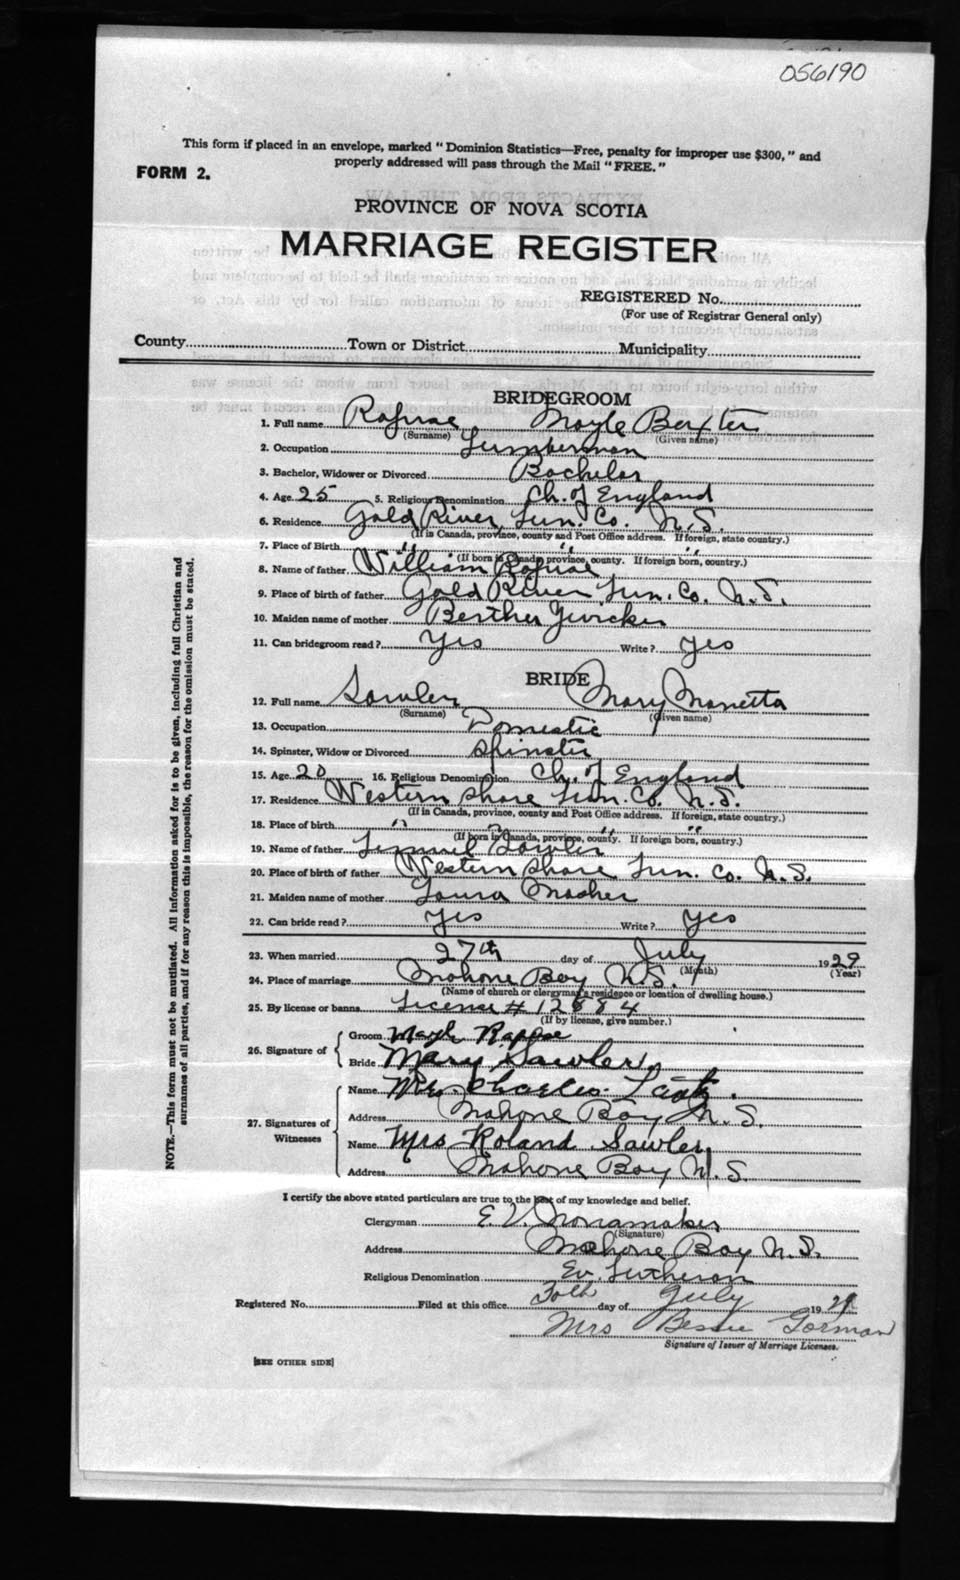 056190
This form if placed in an envelope, marked "Dominion Statistics—Free, penalty for improper use $300," and
properly addressed will pass through the Mail "FREE."
FORM 2.
PROVINCE OF NOVA SCOTIA
MARRIAGE REGISTER
REGISTERED No.
(For use of Registrar General only)
County Town or District Municipality
BRIDEGROOM
1. Full name Rafuse Moyle Baxter
(Surname) (Given name)
2. Occupation Lumberman
3. Bachelor, Widower or Divorced Bachelor
4. Age 25 5. Religious Denomination Ch. of England
6. Residence Gold River, Lun. Co. N.S.
(If in Canada, province, county and Post Office address. If foreign, state country.)
7. Place of Birth " " "
(If born in Canada, province, county. If foreign born, country.)
8. Name of father William Rafuse
9. Place of birth of father Gold River Lun. Co. N.S.
10. Maiden name of mother Berthe
11. Can bridegroom read? Yes Write? Yes
BRIDE
12. Full name Sawler Mary Manetta
(Surname) (Given name)
13. Occupation Domestic
14. Spinster, Widow or Divorced Spinster
15. Age 20 16. Religious Denomination Ch. of England
17. Residence Western Shore Lun. Co. N.S.
(If in Canada, province, county and Post Office address. If foreign, state country.)
18. Place of birth " " "
(If born in Canada, province, county. If foreign born, country.)
19. Name of father Lemuel Sawler
20. Place of birth of father Western Shore Lun. Co. N.S.
21. Maiden name of mother Laura Mosher
22. Can bride read? Yes Write? Yes
23. When married 27th day of July 1929
(Month) (Year)
24. Place of marriage Mahone Bay N.S.
(Name of church or clergyman's residence or location of dwelling house.)
25. By license or banns License # 12884
(If by license, give number.)
26. Signature of
Groom
Bride Mary Sawler.
27. Signatures of Witnesses
Name Mrs. Charles
Address Mahone Bay N.S.
Name Mrs Roland Sawler
Address Mahone Bay N.S.
I certify the above stated particulars are true to the best of my knowledge and belief.
Clergyman E. V. Nonamaker
(Signature)
Address Mahone Bay N.S.
Religious Denomination Ev. Lutheran
Registered No. Filed at this office 30th day of July 1929
Mrs Bessie Gorman
Signature of Issuer of Marriage Licenses.
[SEE OTHER SIDE]
NOTE.—This form must not be mutilated. All information asked for is to be given, including full Christian and
surnames of all parties, and if for any reason this is impossible, the reason for the omission must be stated.